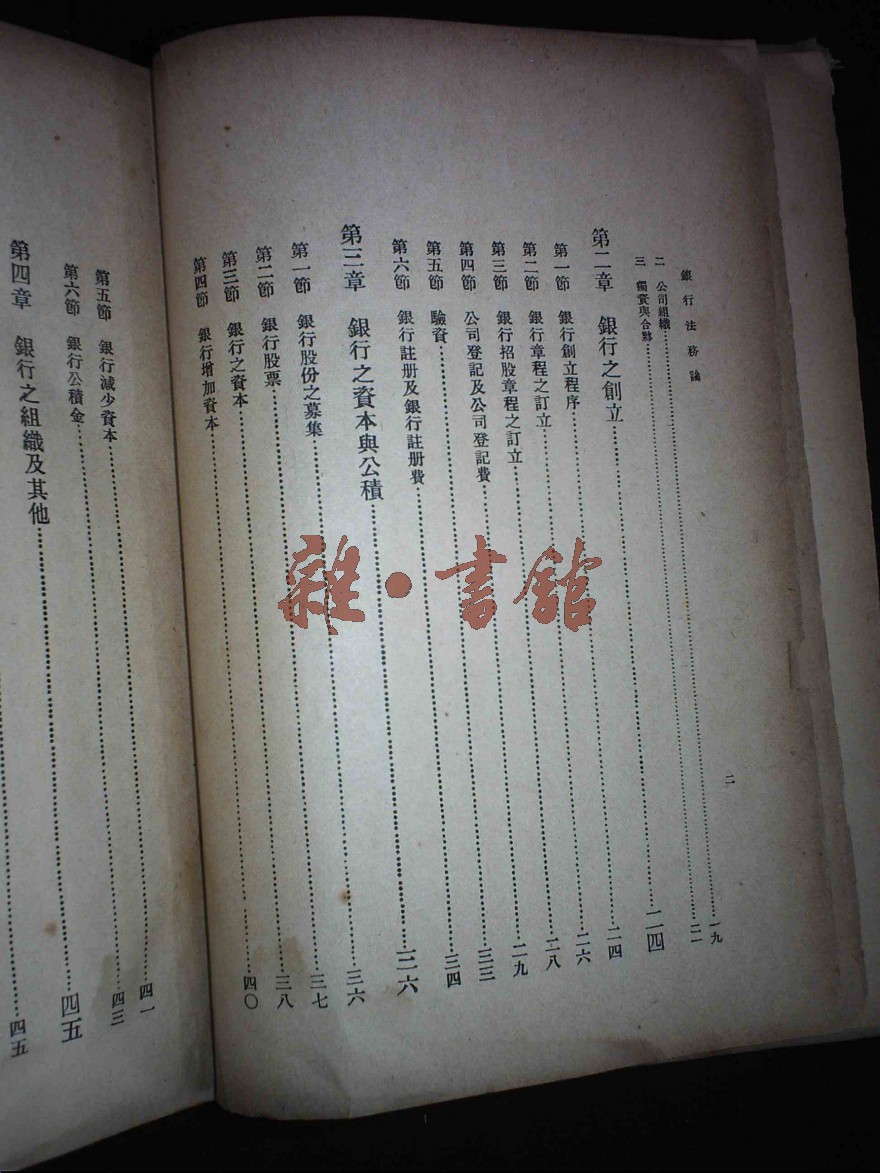 銀行法務論 二
二 公司組織……一九
三 獨資與合夥……二一
第二章 銀行之創立……二四
第一節 銀行創立程序……二四
第二節 銀行章程之訂立……二六
第三節 銀行招股章程之訂立……二八
第四節 公司登記及公司登記費……二九
第五節 驗資……三三
第六節 銀行註册及銀行註册費……三四
第三章 銀行之資本與公積……三六
第一節 銀行股份之募集……三六
第二節 銀行股票……三七
第三節 銀行之資本……三八
第四節 銀行增加資本……四〇
第五節 銀行減少資本……四一
第六節 銀行公積金……四三
第四章 銀行之組織及其他……四五
……四五
雜·書館